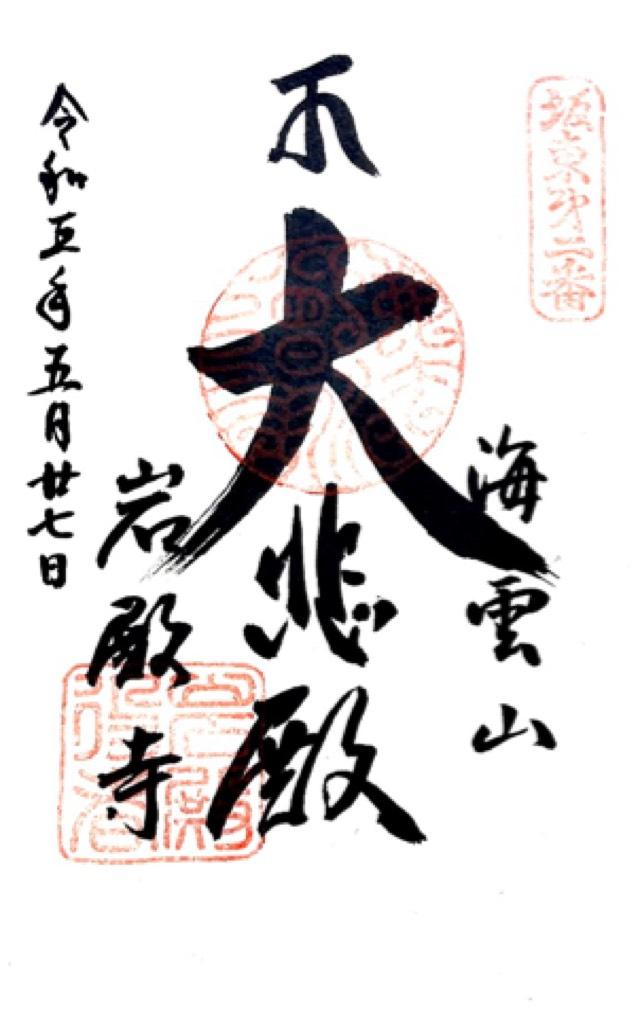 坂東第二番
海雲山
大悲殿
岩殿寺
令和五年五月廿七日